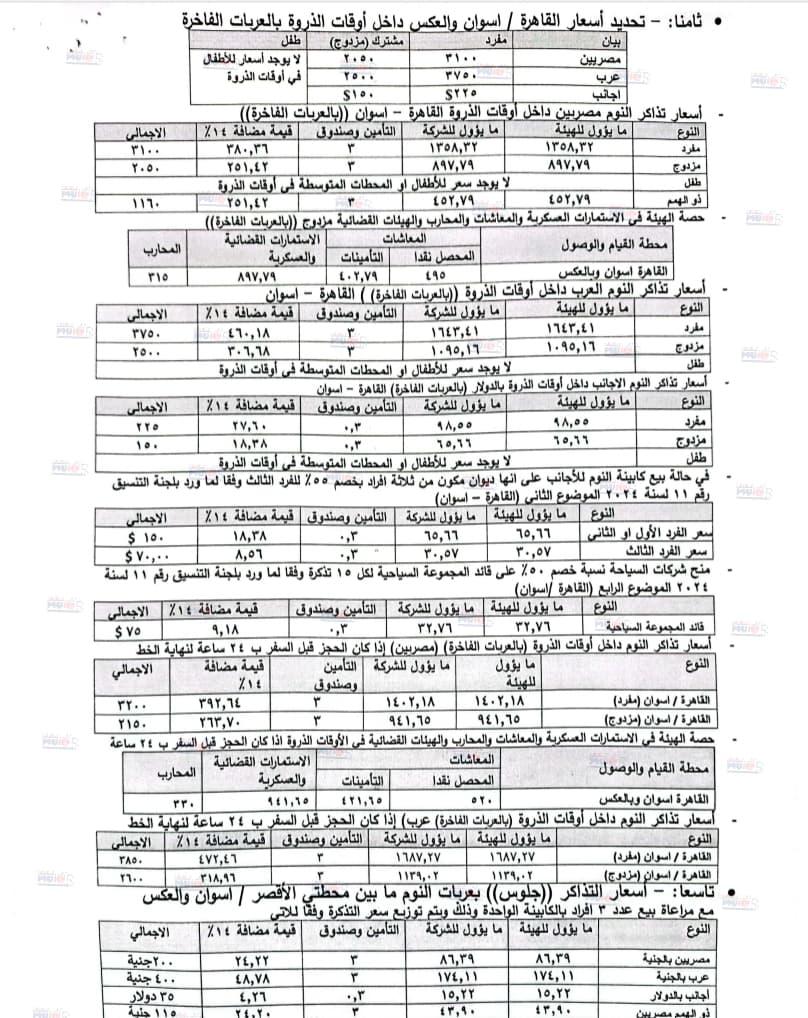 • ثامنا: - تحديد أسعار القاهرة / اسوان والعكس داخل أوقات الذروة بالعربات الفاخرة
بيان مفرد مشترك (مزدوج) طفل
مصريين ٣١٠٠ ٢٠٥٠ لا يوجد أسعار للأطفال في أوقات الذروة
عرب ٣٧٥٠ ٢٥٠٠
اجانب $٢٢٥ $١٥٠
- أسعار تذاكر النوم مصريين داخل أوقات الذروة القاهرة - اسوان ((بالعربات الفاخرة))
النوع ما يؤول للهيئة ما يؤول للشركة التأمين وصندوق قيمة مضافة ١٤٪ الاجمالي
مفرد ١٣٥٨,٣٢ ١٣٥٨,٣٢ ٣ ٣٨٠,٣٦ ٣١٠٠
مزدوج ٨٩٧,٧٩ ٨٩٧,٧٩ ٣ ٢٥١,٤٢ ٢٠٥٠
طفل لا يوجد سعر للأطفال او المحطات المتوسطة في أوقات الذروة
ذو الهمم ٤٥٢,٧٩ ٤٥٢,٧٩ ٣ ٢٥١,٤٢ ١١٦٠
- حصة الهيئة في الاستمارات العسكرية والمعاشات والمحارب والهيئات القضائية مزدوج ((بالعربات الفاخرة))
محطة القيام والوصول المعاشات الاستمارات القضائية والعسكرية المحارب
المحصل نقدا التأمينات
القاهرة اسوان وبالعكس ٤٩٥ ٤٠٢,٧٩ ٨٩٧,٧٩ ٣١٥
- أسعار تذاكر النوم العرب داخل أوقات الذروة ((بالعربات الفاخرة)) القاهرة - اسوان
النوع ما يؤول للهيئة ما يؤول للشركة التأمين وصندوق قيمة مضافة ١٤٪ الاجمالي
مفرد ١٦٤٣,٤١ ١٦٤٣,٤١ ٣ ٤٦٠,١٨ ٣٧٥٠
مزدوج ١٠٩٥,١٦ ١٠٩٥,١٦ ٣ ٣٠٦,٦٨ ٢٥٠٠
طفل لا يوجد سعر للأطفال او المحطات المتوسطة في أوقات الذروة
- أسعار تذاكر النوم الاجانب داخل أوقات الذروة بالدولار (بالعربات الفاخرة) القاهرة - اسوان
النوع ما يؤول للهيئة ما يؤول للشركة التأمين وصندوق قيمة مضافة ١٤٪ الاجمالي
مفرد ٩٨,٥٥ ٩٨,٥٥ ٠,٣ ٢٧,٦٠ ٢٢٥
مزدوج ٦٥,٦٦ ٦٥,٦٦ ٠,٣ ١٨,٣٨ ١٥٠
طفل لا يوجد سعر للأطفال او المحطات المتوسطة في أوقات الذروة
- في حالة بيع كابينة النوم للأجانب على انها ديوان مكون من ثلاثة افراد بخصم ٥٥٪ للفرد الثالث وفقا لما ورد بلجنة التنسيق
رقم ١١ لسنة ٢٠٢٤ الموضوع الثاني (القاهرة - اسوان)
النوع ما يؤول للهيئة ما يؤول للشركة التأمين وصندوق قيمة مضافة ١٤٪ الاجمالي
سعر الفرد الأول او الثاني ٦٥,٦٦ ٦٥,٦٦ ٠,٣ ١٨,٣٨ ١٥٠ $
سعر الفرد الثالث ٣٠,٥٧ ٣٠,٥٧ ٠,٣ ٨,٥٦ ٧٠,٠٠ $
- منح شركات السياحة نسبة خصم ٥٠٪ على قائد المجموعة السياحية لكل ١٥ تذكرة وفقا لما ورد بلجنة التنسيق رقم ١١ لسنة
٢٠٢٤ الموضوع الرابع (القاهرة /اسوان)
النوع ما يؤول للهيئة ما يؤول للشركة التأمين وصندوق قيمة مضافة ١٤٪ الاجمالي
قائد المجموعة السياحية ٣٢,٧٦ ٣٢,٧٦ ٠,٣ ٩,١٨ ٧٥ $
- أسعار تذاكر النوم داخل أوقات الذروة (بالعربات الفاخرة) (مصريين) إذا كان الحجز قبل السفر ب ٢٤ ساعة لنهاية الخط
النوع ما يؤول للهيئة ما يؤول للشركة التأمين وصندوق قيمة مضافة ١٤٪ الاجمالي
القاهرة / اسوان (مفرد) ١٤٠٢,١٨ ١٤٠٢,١٨ ٣ ٣٩٢,٦٤ ٣٢٠٠
القاهرة / اسوان (مزدوج) ٩٤١,٦٥ ٩٤١,٦٥ ٣ ٢٦٣,٧٠ ٢١٥٠
- حصة الهيئة في الاستمارات العسكرية والمعاشات والمحارب والهيئات القضائية في الأوقات الذروة اذا كان الحجز قبل السفر ب ٢٤ ساعة
محطة القيام والوصول المعاشات الاستمارات القضائية والعسكرية المحارب
المحصل نقدا التأمينات
القاهرة اسوان وبالعكس ٥٢٠ ٤٢١,٦٥ ٩٤١,٦٥ ٣٣٠
- أسعار تذاكر النوم داخل أوقات الذروة (بالعربات الفاخرة) عرب) إذا كان الحجز قبل السفر ب ٢٤ ساعة لنهاية الخط
النوع ما يؤول للهيئة ما يؤول للشركة التأمين وصندوق قيمة مضافة ١٤٪ الاجمالي
القاهرة / اسوان (مفرد) ١٦٨٧,٢٧ ١٦٨٧,٢٧ ٣ ٤٧٢,٤٦ ٣٨٥٠
القاهرة / اسوان (مزدوج) ١١٣٩,٠٢ ١١٣٩,٠٢ ٣ ٣١٨,٩٦ ٢٦٠٠
• تاسعا: - أسعار التذاكر ((جلوس)) بعربات النوم ما بين محطتي الأقصر / أسوان والعكس
مع مراعاة بيع عدد ٣ افراد بالكابينة الواحدة وذلك ويتم توزيع سعر التذكرة وفقا للاتي
النوع ما يؤول للهيئة ما يؤول للشركة التأمين وصندوق قيمة مضافة ١٤٪ الاجمالي
مصريين بالجنية ٨٦,٣٩ ٨٦,٣٩ ٣ ٢٤,٢٢ ٢٠٠جنية
عرب بالجنية ١٧٤,١١ ١٧٤,١١ ٣ ٤٨,٧٨ ٤٠٠ جنية
أجانب بالدولار ١٥,٢٢ ١٥,٢٢ ٠,٣ ٤,٢٦ ٣٥ دولار
ذو الهمم مصريين ٤٣,٩٠ ٤٣,٩٠ ٣ ٢٤,٢٠ ١١٥ جنية